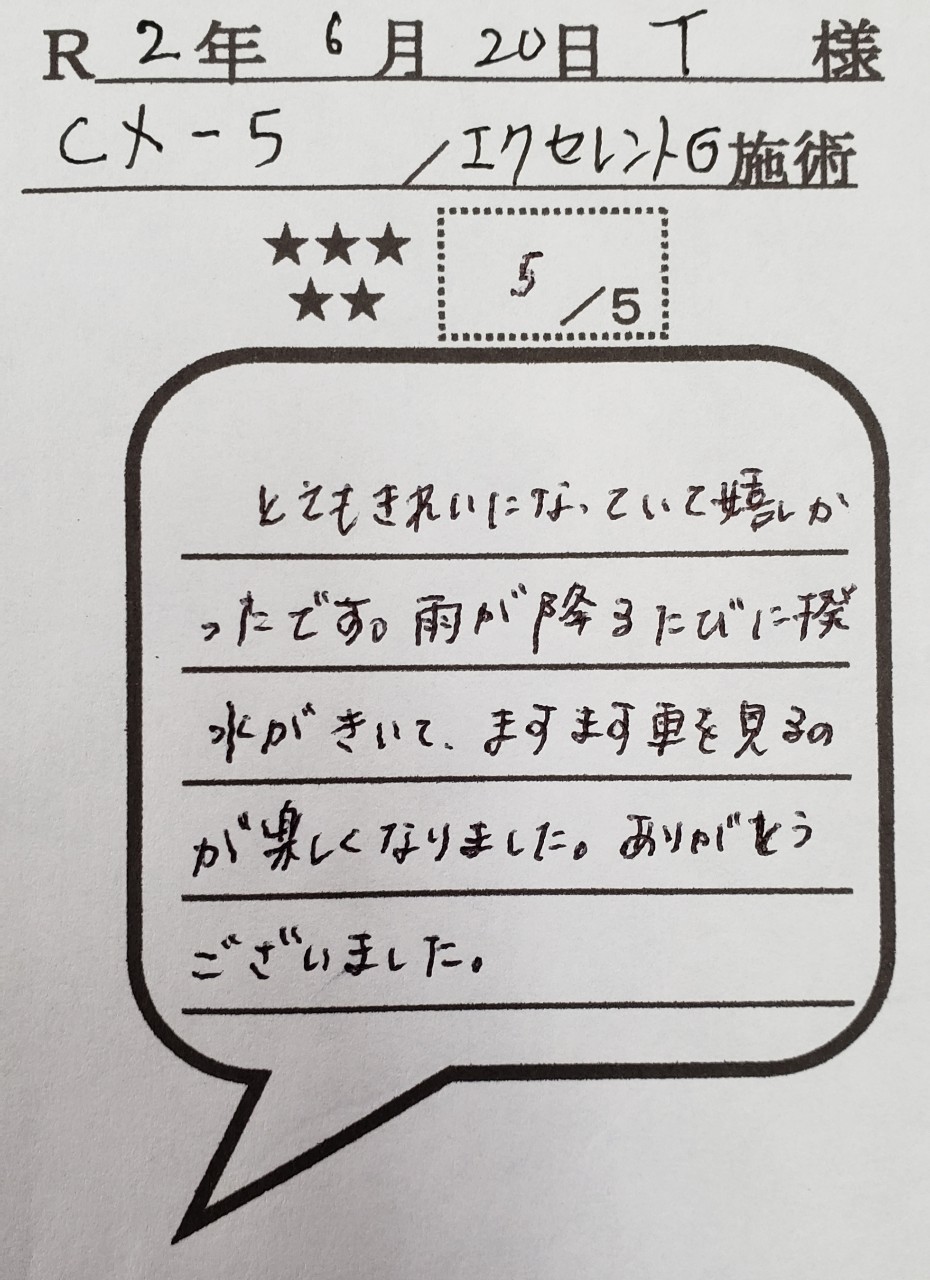 R 2年 6月 20日 T 様
CX-5 /エクセレントG施術
★★★
★★
5/5
とてもきれいになっていて嬉しか
ったです。雨が降るたびに撥
水がきいて、ますます車を見るの
が楽しくなりました。ありがとう
ございました。